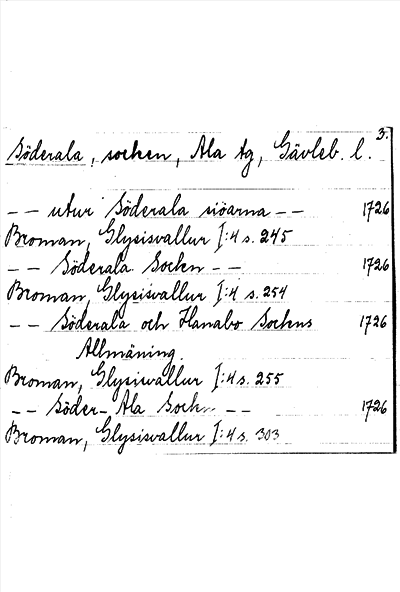 3.
Söderala, socken, Ala tg, Gävleb. l.
-- utur Söderala siöarna -- 1726
Broman, Glysisvallur I:4 s. 245
-- Söderala Sockn -- 1726
Broman, Glysisvallur I:4 s. 254
-- Söderala och Hanabo Sockns 1726
Allmäning.
Broman, Glysisvallur I:4 s. 255
-- Söder-Ala Sockn -- 1726
Broman, Glysisvallur I:4 s. 303